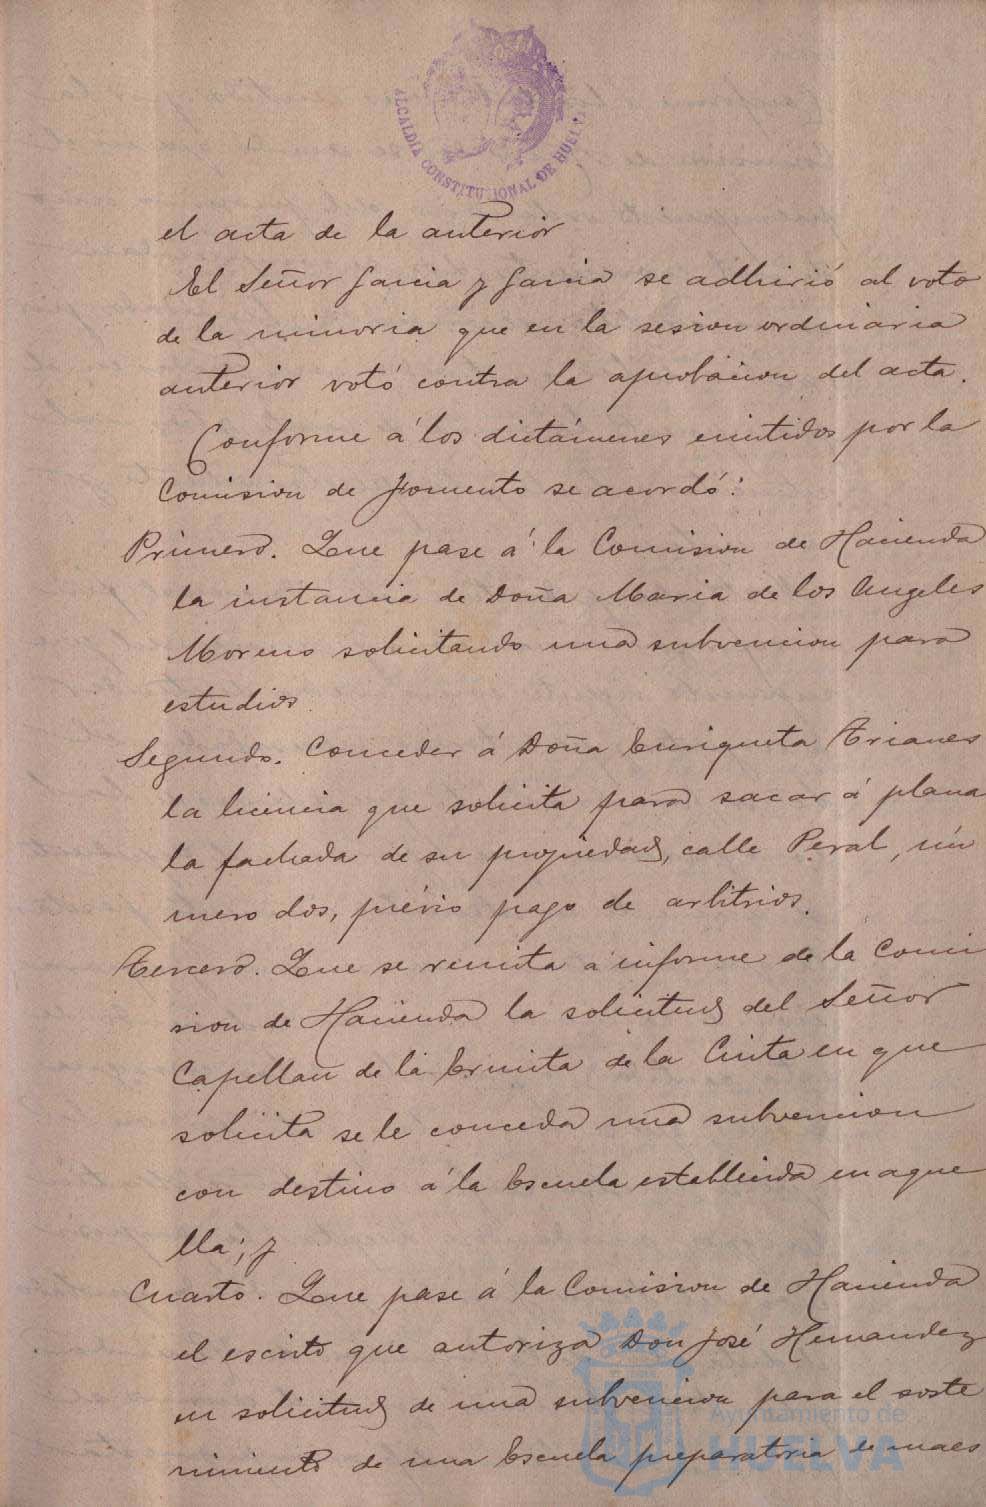 ALCALDÍA CONSTITUCIONAL DE HUELVA
el acta de la anterior
El Señor Garcia y Garcia se adhirió al voto
de la minoria que en la sesion ordinaria
anterior votó contra la aprobacion del acta.
Conforme á los dictámenes emitidos por la
Comision de Fomento se acordó:
Primero. Que pase á la Comision de Hacienda
la instancia de Doña Maria de los Angeles
Moreno solicitando una subvencion para
estudios.
Segundo. Conceder á Doña Enriqueta Arianes
la licencia que solicita para sacar á plana
la fachada de su propiedad, calle Peral, nú
mero dos, prévio pago de arbitrios.
Tercero. Que se remita a informe de la Comi
sion de Hacienda la solicitud del Señor
Capellan de la Ermita de la Cinta en que
solicita se le conceda una subvencion
con destino á la Escuela establecida en aque
lla; y
Cuarto. Que pase á la Comision de Hacienda
el escrito que autoriza Don José Hernandez
en solicitud de una subvencion para el soste
nimiento de una Escuela preparatoria de maes
Ayuntamiento de
HUELVA